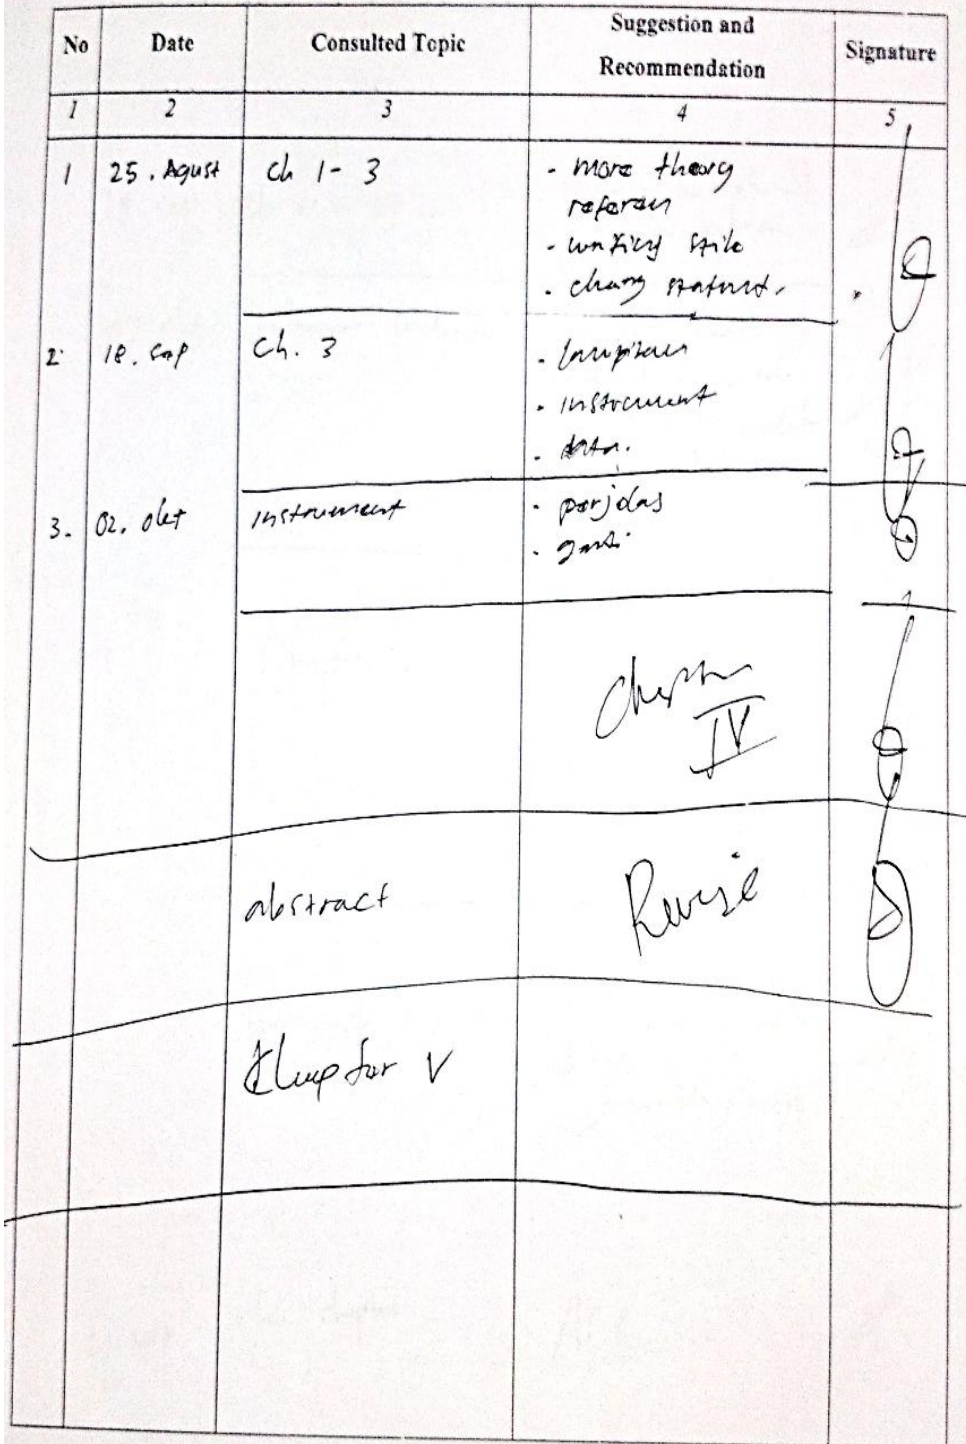 No Date Consulted Topic Suggestion and Recommendation Signature
1 2 3 4 5
1 25. Agust Ch 1-3 - more theory
referen
- writing stile
- chang
2. 18. Sep Ch. 3 - lampiran
- instrument
- data.
3. 02. okt instrument - perjelas
- ganti
Chapter
IV
abstract Revise
Chapter V